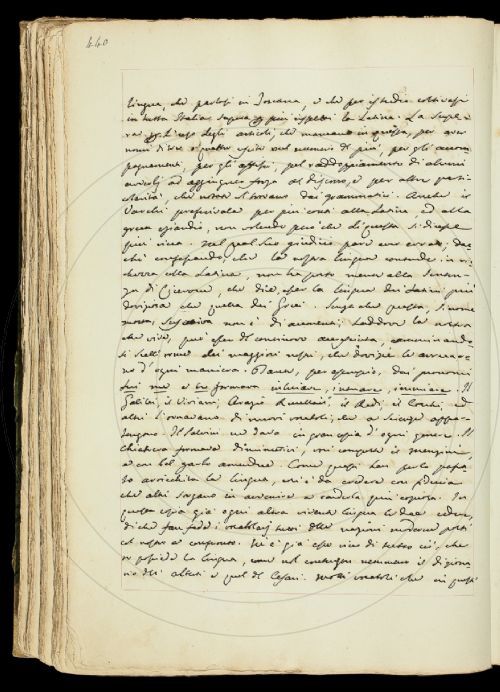 440
lingua, che parlasi in Toscana, e che per istudio coltivasi
in tutta Italia supera più rispetti la Latina. La supera
per l'uso degli articoli, che mancano in questa, per aver
nomi di tre o quattro esiti nel numero di più, per gli accom
pagnamenti, per gli affissi, pel raddoppiamento di alcuni
avverbj ad aggiungere forza al discorso, e per altre parti
colarità, che notate si trovano dai grammatici. Anche il
Varchi preferivala per più cose alla Latina, ed alla
greca eziandio, non volendo però che di questa si dicesse
più ricca. Nel qual suo giudizio pare aver errato, da
chè confessando, che la nostra lingua contende in ric
chezza colla Latina, non ha posto mente alla senten
za di Cicerone, che dice esser la lingua dei Latini più
doviziosa che quella dei Greci. Senza che questa, siccome
morta, non è di aumenti; laddove la nostra
che vive, può esser di continuo accresciuta, camminando
si sull'orme dei maggiori nostri, che dovizie le arreca
no d'ogni maniera. Dante, per esempio, dai pronomi
lui me e tu formava inluiare, inmeare, intuiare. Il
Galilei, il Viviani, Orazio Rucellai, il Redi, il Cocchi, ed
altri l'ornavano di nuovi vocaboli, che a scienze appar
tengono. Il Salvini ne dava in gran copia d'ogni genere. Il
Chiabrera formava diminutivi, voci composte il
e con bel garbo amendue. Come questi han per lo passa
to arricchita la lingua, così è da credere con fiducia
che altri sorgano in avvenire a renderla più copiosa. In
questa copia già ogni altra vivente lingua le deve cedere,
di che fan fede i vocabolarj tutti delle nazioni moderne posti
col nostro a confronto. Nè è già esso ricco di tutto ciò, che
si possiede la lingua, come nol contengon nemmeno il diziona
rio dell'Alberti e quel del Cesari. Molti vocaboli che in questi